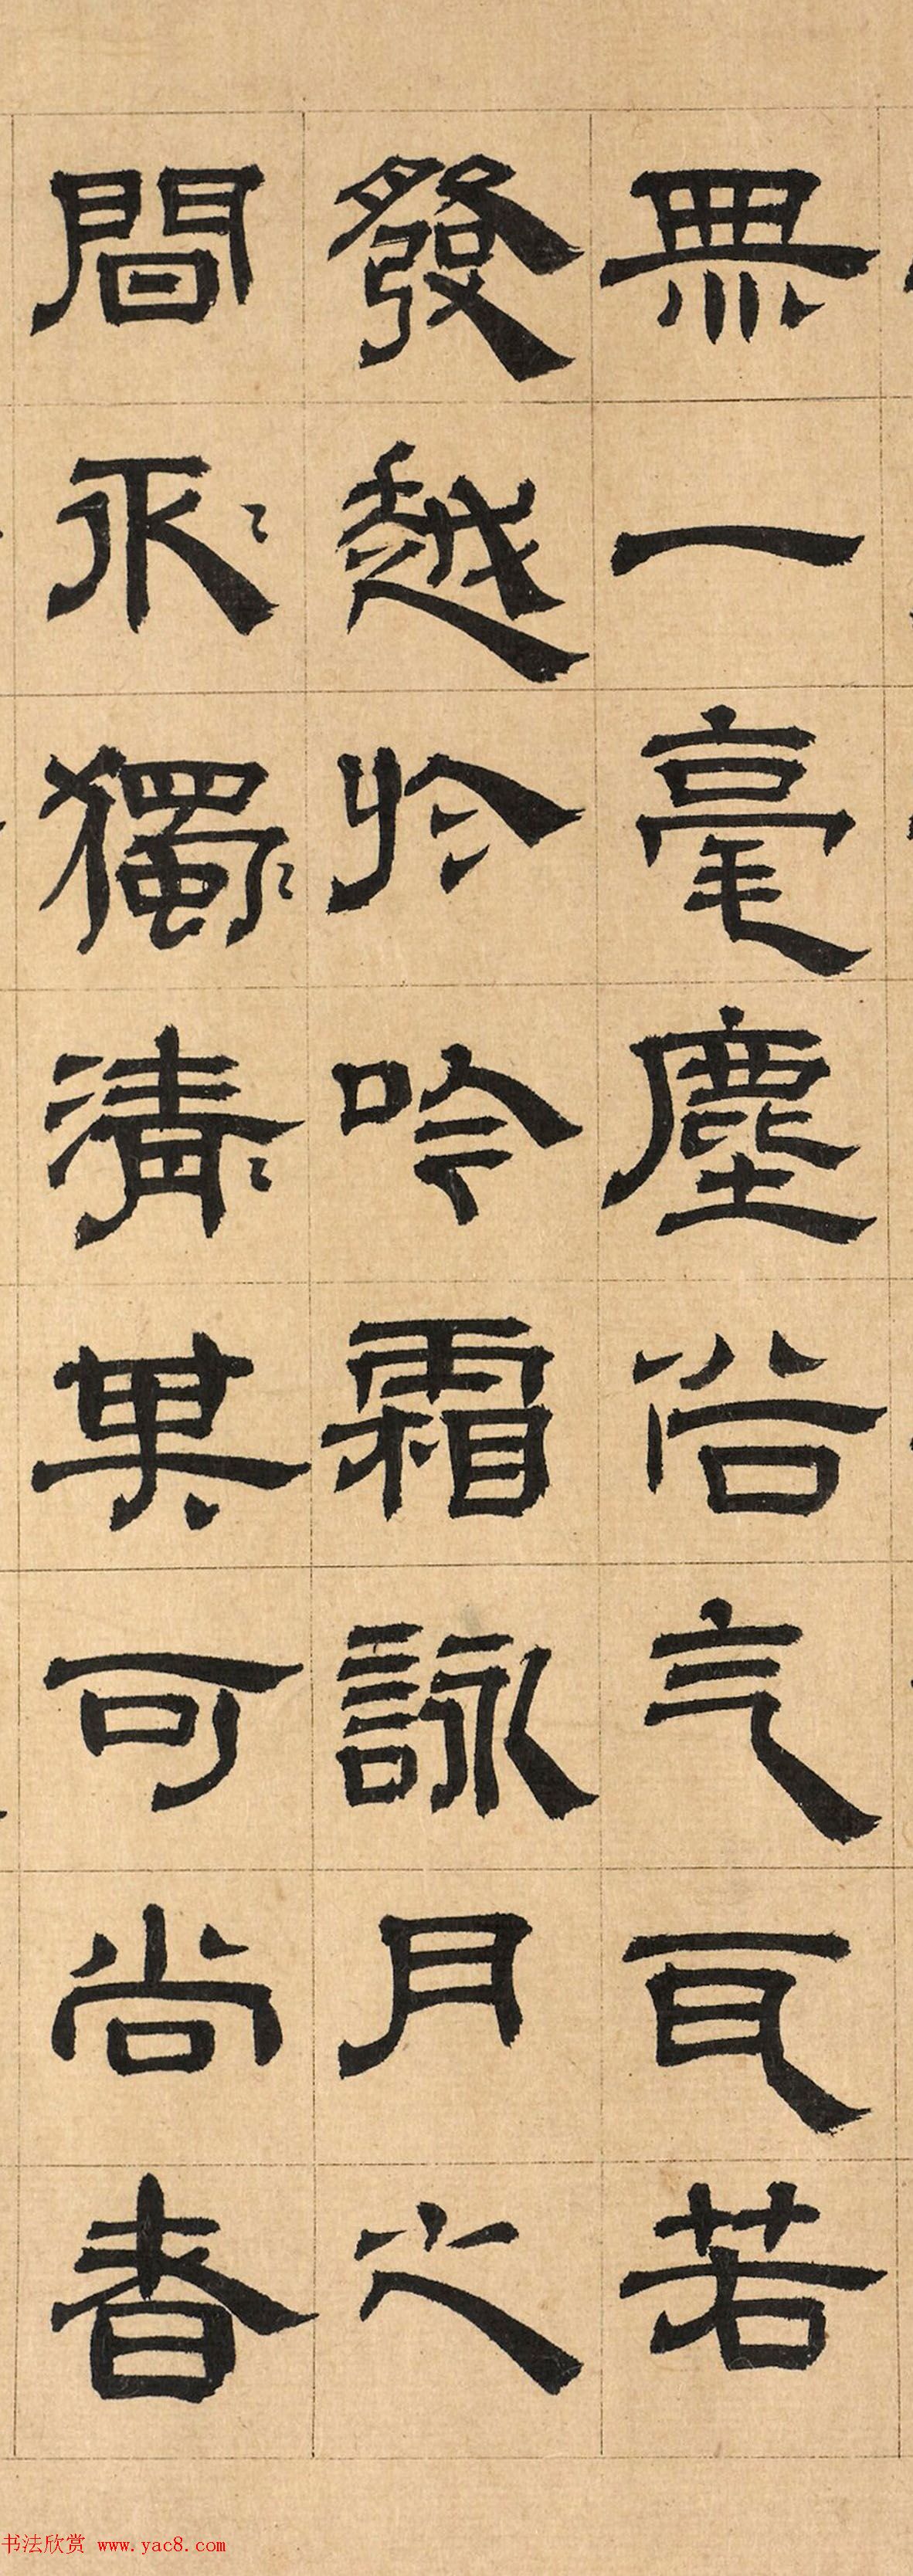 無一毫塵俗气耳若
發越於吟霜詠月之
間不〻獨〻清〻果可尚者
书法欣赏 www.yac8.com